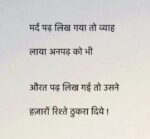 मर्द पढ़ लिख गया तो व्याह
लाया अनपढ़ को भी
औरत पढ़ लिख गई तो उसने
हज़ारों रिश्ते ठुकरा दिये !